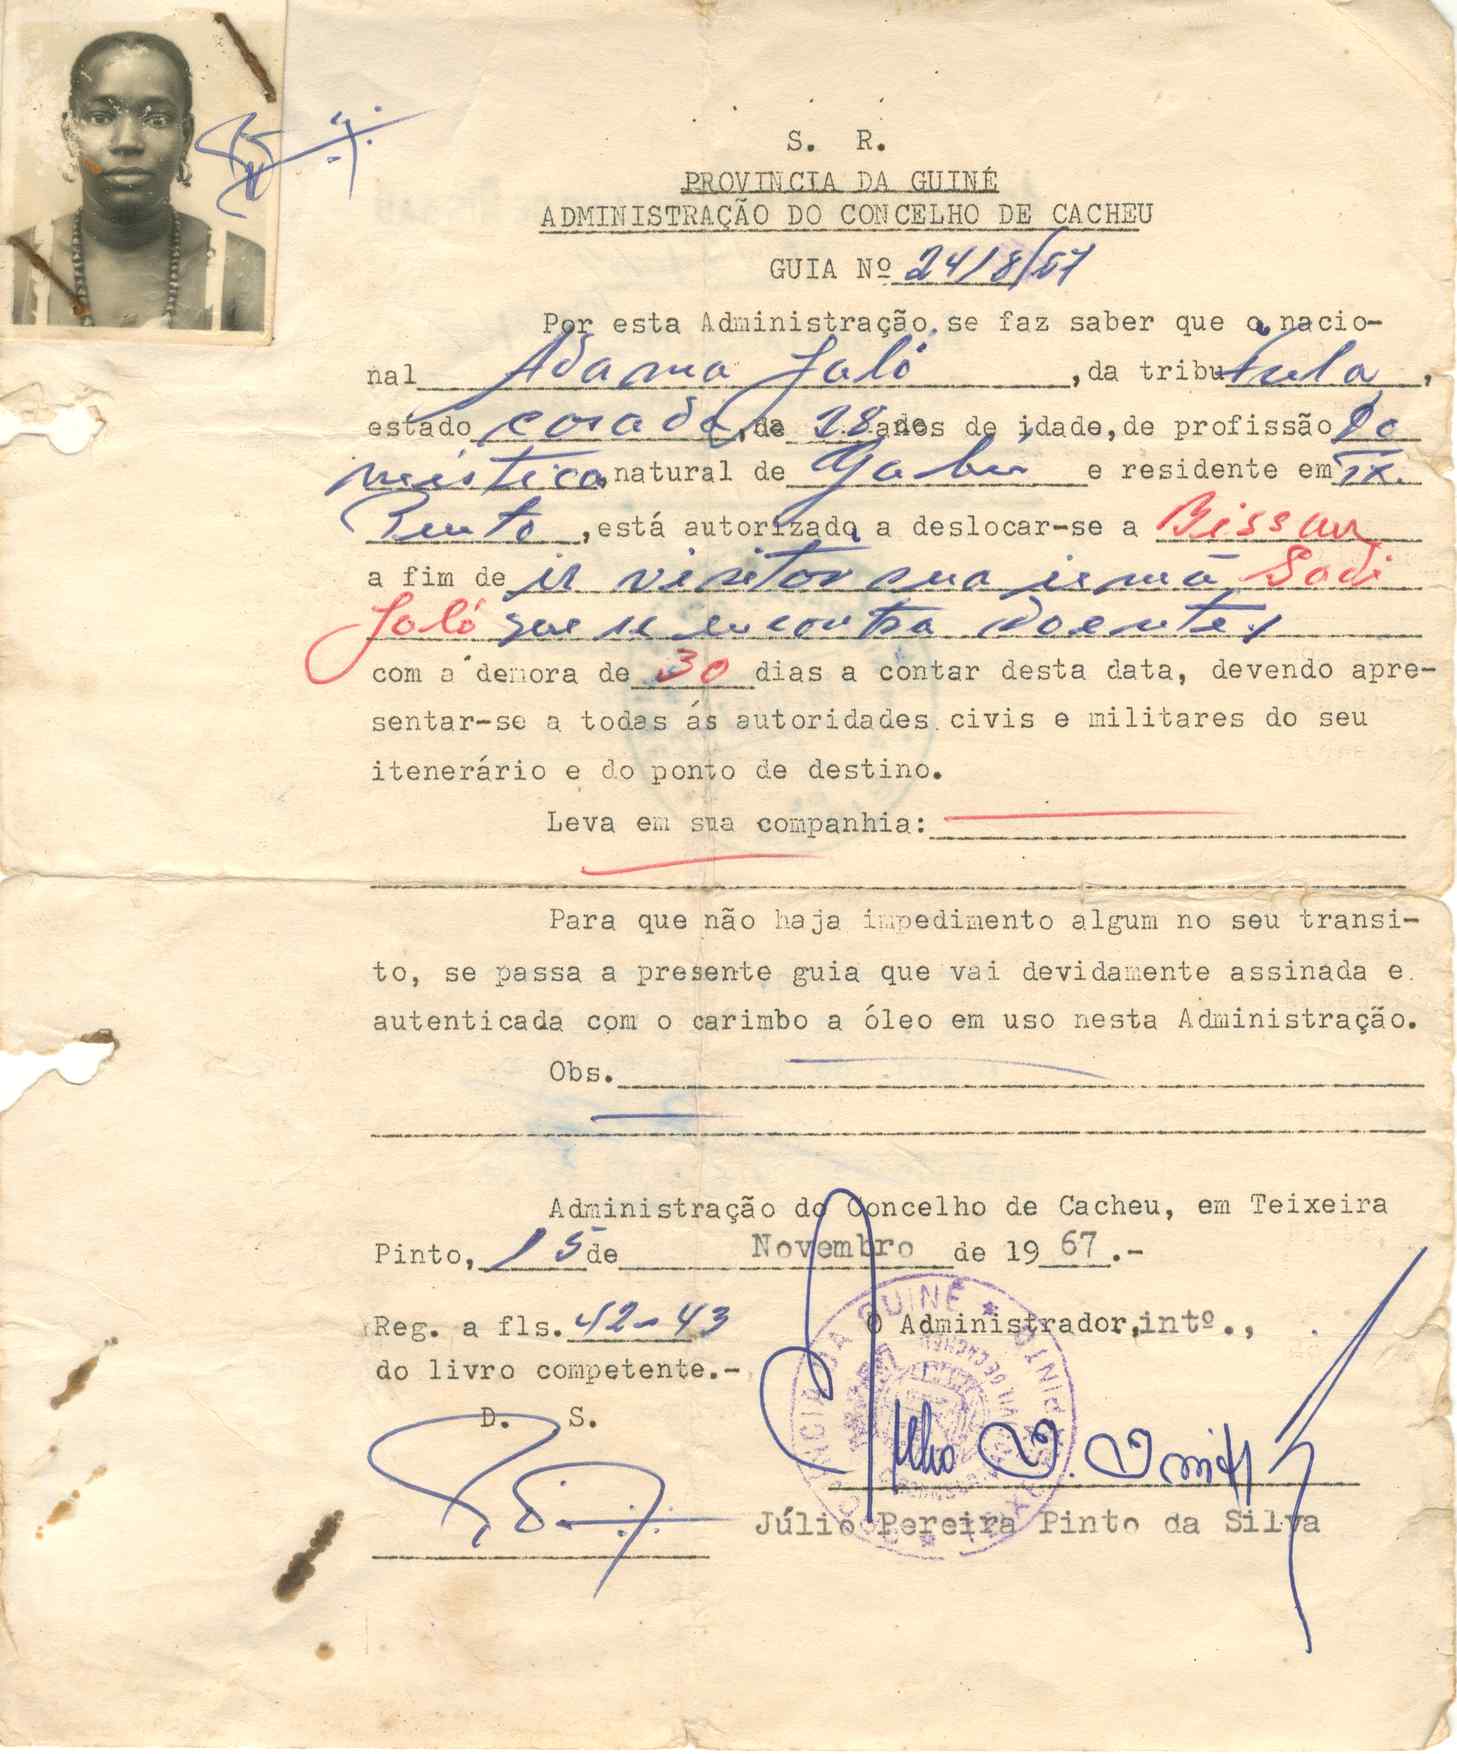 S. R.
PROVINCIA DA GUINÉ
ADMINISTRAÇÃO DO CONCELHO DE CACHEU
GUIA Nº 24/8/67
Por esta Administração se faz saber que a nacio-
nal Adama Jaló, da tribu fula,
estado casada, de 28 anos de idade, de profissão Do
méstica, natural de Gabú e residente em Tx.
Pinto, está autorizada a deslocar-se a Bissau
a fim de ir visitar sua irmã Sadi
Jaló que se encontra doente,
com a demora de 30 dias a contar desta data, devendo apre-
sentar-se a todas ás autoridades civis e militares do seu
itenerário e do ponto de destino.
Leva em sua companhia:
Para que não haja impedimento algum no seu transi-
to, se passa a presente guia que vai devidamente assinada e
autenticada com o carimbo a óleo em uso nesta Administração.
Obs.
Administração do Concelho de Cacheu, em Teixeira
Pinto, 15 de Novembro de 1967.-
Reg. a fls. 42-43 O Administrador, intº.,
do livro competente.-
D. S.
Júlio Pereira Pinto da Silva
PROVINCIA DA GUINÉ * TEIXEIRA PINTO *